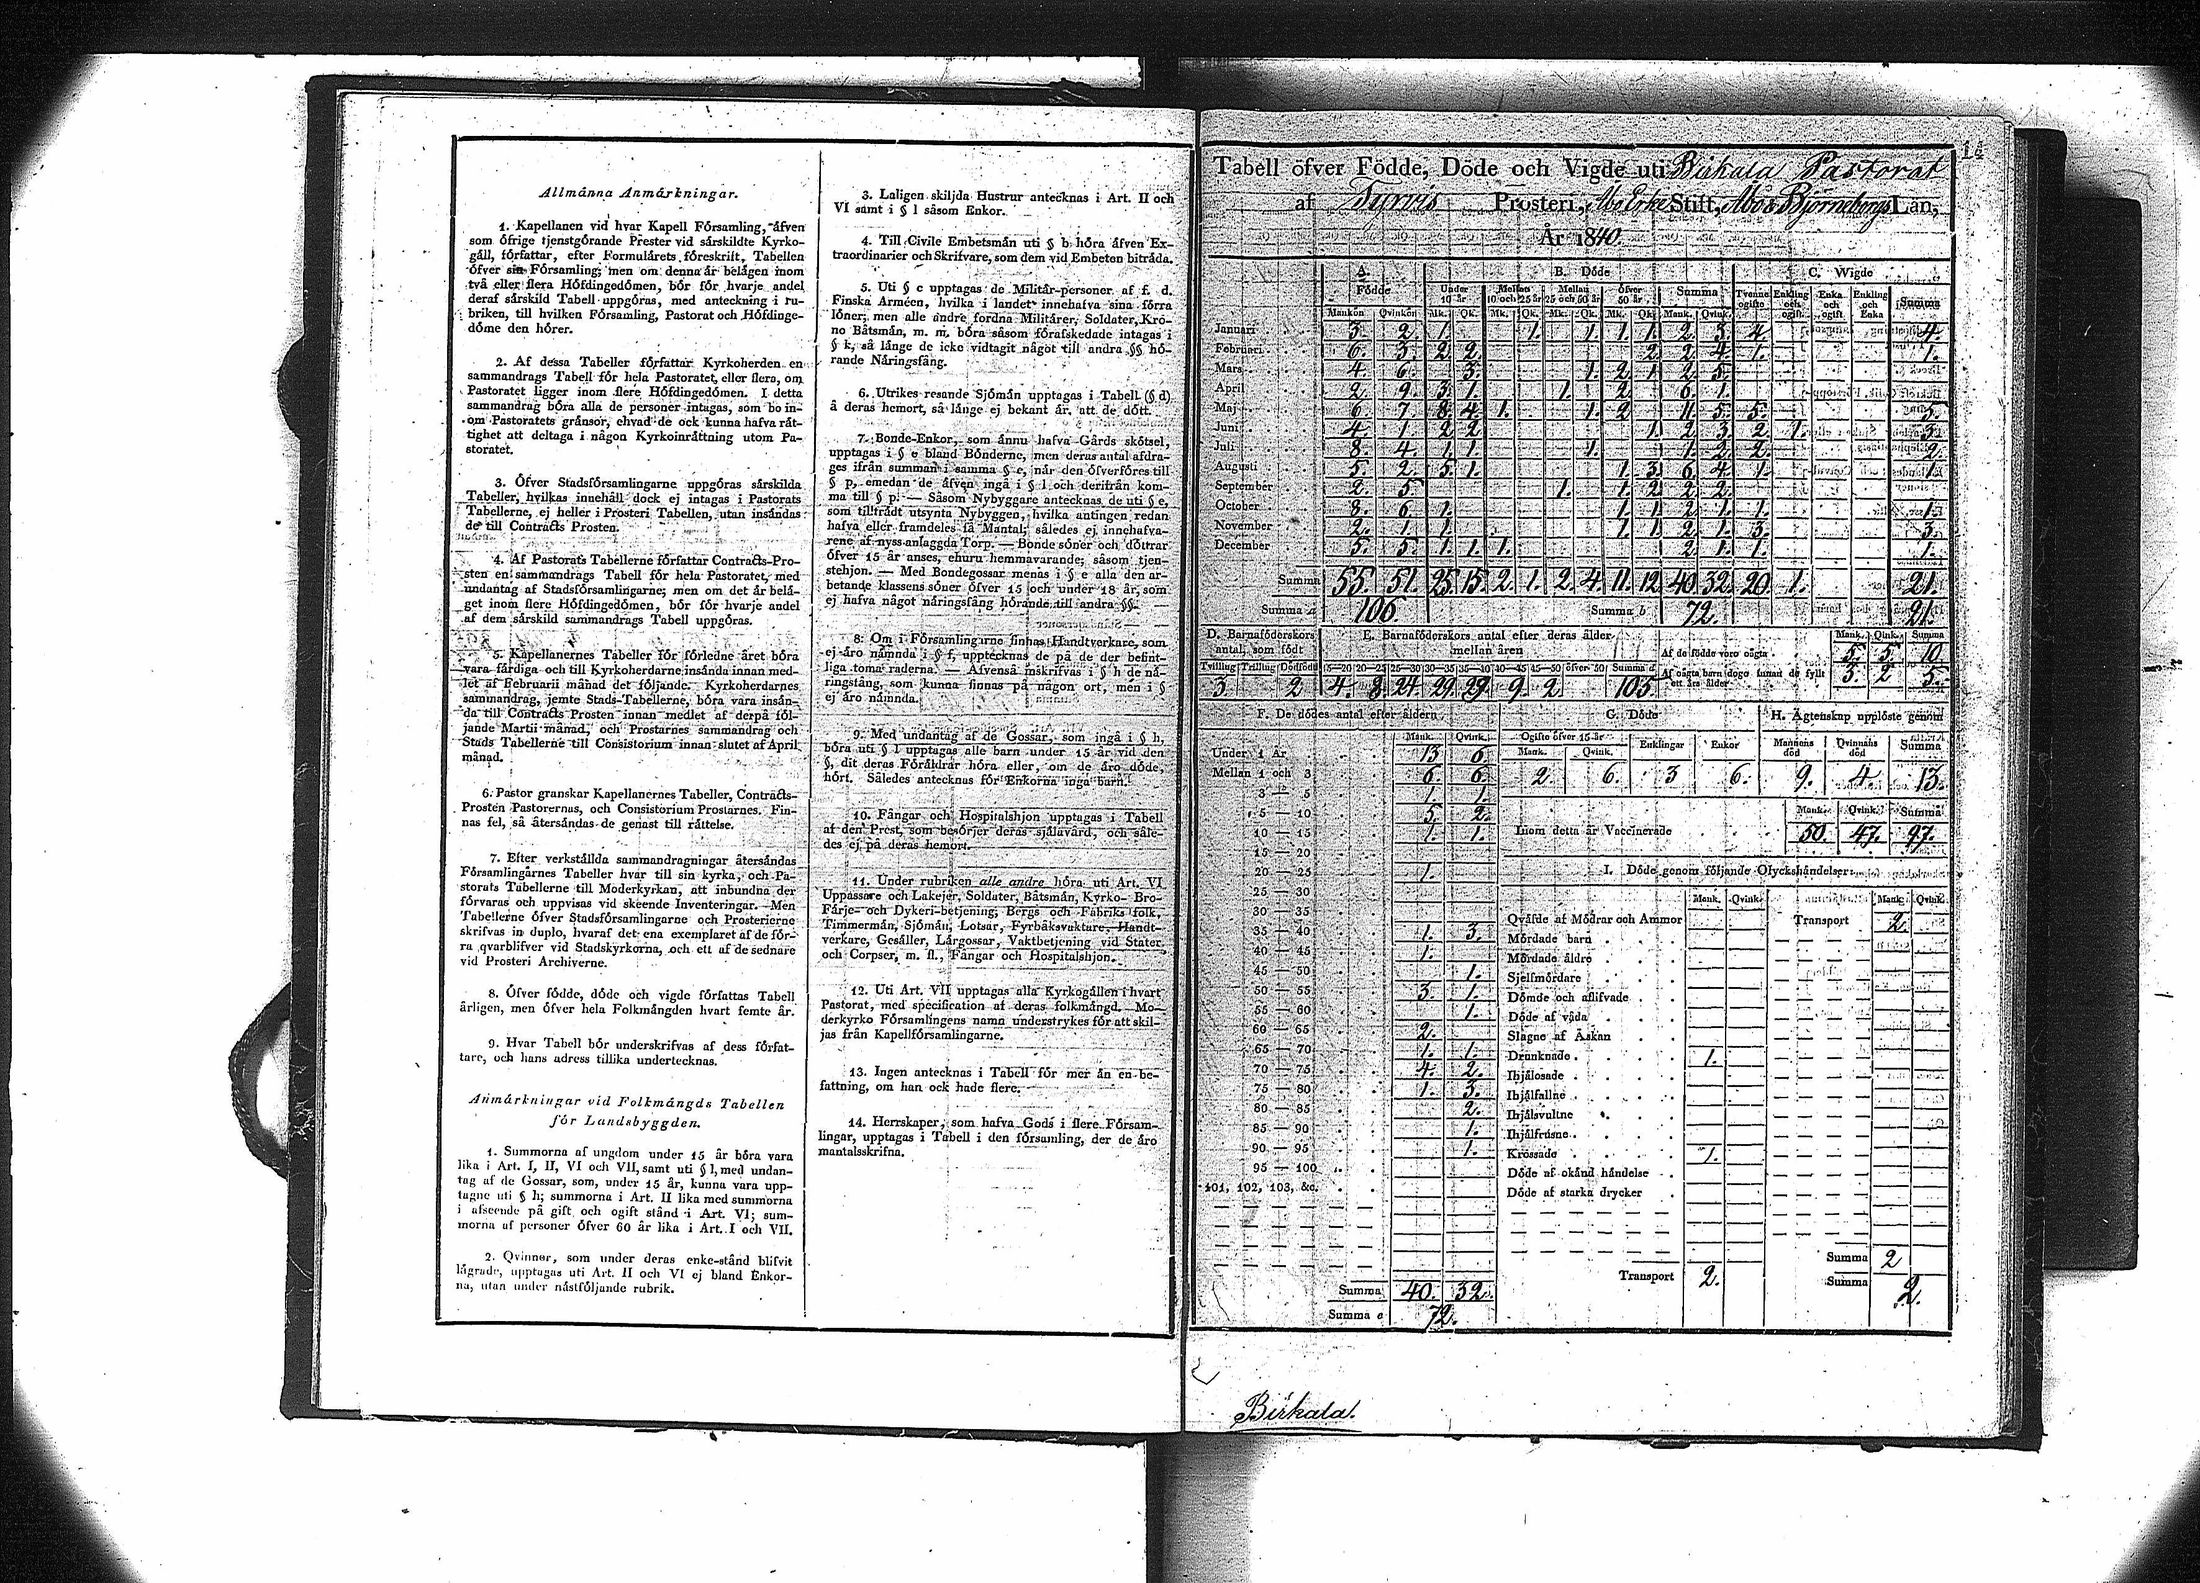 Allmänna Anmärkningar.
1. Kapellanen vid hvar Kapell Församling, äfven
som öfrige tjenstgörande Prester vid särskildte Kyrko-
gäll, författar, efter Formulärets föreskrift, Tabellen
öfver sin Församling; men om denna är belägen inom
två eller flera Höfdingedömen, bör för hvarje andel
deraf särskild Tabell uppgöras, med anteckning i ru-
briken, till hvilken Församling, Pastorat och Höfdinge-
döme den hörer.
2. Af dessa Tabeller författar Kyrkoherden en
sammandrags Tabell för hela Pastoratet, eller flera, om
Pastoratet ligger inom flere Höfdingedömen. I detta
sammandrag böra alla de personer intagas, som bo in-
om Pastoratets gränsor, ehvad de ock kunna hafva rät-
tighet att deltaga i någon Kyrkoinrättning utom Pa-
storatet.
3. Öfver Stadsförsamlingarne uppgöras särskilda
Tabeller, hvilkas innehåll dock ej intagas i Pastorats
Tabellerne, ej heller i Prosteri Tabellen, utan insändas
de till Contracts Prosten.
4. Af Pastorats Tabellerne författar Contracts-Pro-
sten en sammandrags Tabell för hela Pastoratet, med
undantag af Stadsförsamlingarne; men om det är belä-
get inom flere Höfdingedömen, bör för hvarje andel
af dem särskild sammandrags Tabell uppgöras.
5. Kapellanernes Tabeller för förledne året böra
vara färdiga och till Kyrkoherdarne insända innan med-
let af Februarii månad det följande. Kyrkoherdarnes
sammandrag, jemte Stads-Tabellerne, böra vara insän-
da till Contracts Prosten innan medlet af derpå föl-
jande Martii månad, och Prostarnes sammandrag och
Stads Tabellerne till Consistorium innan slutet af April
månad.
6. Pastor granskar Kapellanernes Tabeller, Contracts-
Prosten Pastorernas, och Consistorium Prostarnes. Fin-
nas fel, så återsändas de genast till rättelse.
7. Efter verkställda sammandragningar återsändas
Församlingarnes Tabeller hvar till sin kyrka, och Pa-
storats Tabellerne till Moderkyrkan, att inbundna der
förvaras och uppvisas vid skeende Inventeringar. Men
Tabellerne öfver Stadsförsamlingarne och Prosterierne
skrifvas in duplo, hvaraf det ena exemplaret af de för-
ra qvarblifver vid Stadskyrkorna, och ett af de sednare
vid Prosteri Archiverne.
8. Öfver födde, döde och vigde författas Tabell
årligen, men öfver hela Folkmängden hvart femte år.
9. Hvar Tabell bör underskrifvas af dess förfat-
tare, och hans adress tillika undertecknas.
Anmärkningar vid Folkmängds Tabellen
för Landsbyggden.
1. Summorna af ungdom under 15 år böra vara
lika i Art. I, II, VI och VII, samt uti § l, med undan-
tag af de Gossar, som, under 15 år, kunna vara upp-
tagne uti § h; summorna i Art. II lika med summorna
i afseende på gift och ogift stånd i Art. VI; sum-
morna af personer öfver 60 år lika i Art. I och VII.
2. Qvinnor, som under deras enke-stånd blifvit
lägrade, upptagas uti Art. II och VI ej bland Enkor-
na, utan under nästföljande rubrik.
3. Laligen skiljda Hustrur antecknas i Art. II och
VI samt i § l såsom Enkor.
4. Till Civile Embetsmän uti § b höra äfven Ex-
traordinarier och Skrifvare, som dem vid Embeten biträda.
5. Uti § c upptagas de Militär-personer af f. d.
Finska Arméen, hvilka i landet innehafva sina förra
löner; men alle andre fordna Militärer, Soldater, Kro-
no Båtsmän, m. m. böra såsom förafskedade intagas i
§ k, så länge de icke vidtagit något till andra §§ hö-
rande Näringsfång.
6. Utrikes resande Sjömän upptagas i Tabell (§ d)
å deras hemort, så länge ej bekant är, att de dött.
7. Bonde-Enkor, som ännu hafva Gårds skötsel,
upptagas i § e bland Bönderne, men deras antal afdra-
ges ifrån summan i samma § e, när den öfverföres till
§ p, emedan de äfven ingå i § l och derifrån kom-
ma till § p. — Såsom Nybyggare antecknas de uti § e,
som tillträdt utsynta Nybyggen, hvilka antingen redan
hafva eller framdeles få Mantal; således ej innehafva-
rene af nyss anlaggda Torp. — Bonde söner och döttrar
öfver 15 år anses, ehuru hemmavarande, såsom tjen-
stehjon. — Med Bondegossar menas i § e alla den ar-
betande klassens söner öfver 15 och under 18 år, som
ej hafva något näringsfång hörande till andra §§.
8. Om i Församlingarne finnas Handtverkare, som
ej äro nämnda i § f, upptecknas de på de der befint-
liga toma raderna. — Äfvenså inskrifvas i § h de nä-
ringsfång, som kunna finnas på någon ort, men i §
ej äro nämnda.
9. Med undantag af de Gossar, som ingå i § h,
böra uti § l upptagas alle barn under 15 år vid den
§, dit deras Föräldrar höra eller, om de äro döde,
hört. Således antecknas för Enkorna inga barn.
10. Fångar och Hospitalshjon upptagas i Tabell
af den Prest, som besörjer deras själavård, och såle-
des ej på deras hemort.
11. Under rubriken alle andre höra uti Art. VI
Uppassare och Lakejer, Soldater, Båtsmän, Kyrko- Bro-
Färje- och Dykeri-betjening, Bergs och Fabriks folk,
Timmermän, Sjömän, Lotsar, Fyrbåksvaktare, Handt-
verkare, Gesäller, Lärgossar, Vaktbetjening vid Stater
och Corpser, m. fl., Fångar och Hospitalshjon.
12. Uti Art. VII upptagas alla Kyrkogällen i hvart
Pastorat, med specification af deras folkmängd. Mo-
derkyrko Församlingens namn understrykes för att skil-
jas från Kapellförsamlingarne.
13. Ingen antecknas i Tabell för mer än en be-
fattning, om han ock hade flere.
14. Herrskaper, som hafva Gods i flere Försam-
lingar, upptagas i Tabell i den församling, der de äro
mantalsskrifna.
14
Tabell öfver Födde, Döde och Vigde uti Birkala Pastorat
af Tyrvis Prosteri, Åbo Erke Stift, Åbo & Björneborgs Län,
År 1840.
A. Födde B. Döde C. Wigde
Under 10 år Mellan 10 och 25 år Mellan 25 och 50 år öfver 50 år Summa Tvenne ogifte Enkling och ogift Enka och ogift Enkling och Enka Summa
Mankön Qvinkön Mk. Qk. Mk. Qk. Mk. Qk. Mk. Qk. Mank. Qvink.
Januari 3. 2. 1. 1. 1. 1. 1. 2. 3. 4. 4.
Februari 6. 3. 2. 2. 2. 2. 4. 1. 1.
Mars 4. 6. 3. 1. 2. 1. 2. 5.
April 2. 9. 3. 1. 1. 2. 6. 1.
Maj 6. 7. 8. 4. 1. 1. 2. 11. 5. 5. 5.
Juni 4. 1. 2. 2. 1. 2. 3. 2. 1. 3.
Juli 8. 4. 1. 1. 1. 1. 2. 2. 2.
Augusti 5. 2. 5. 1. 1. 3. 6. 4. 1. 1.
September 2. 5. 1. 1. 2. 2. 2.
October 8. 6. 1. 1. 1. 2. 1. 1. 1.
November 2. 1. 1. 1. 1. 2. 1. 3. 3.
December 5. 5. 1. 1. 1. 2. 1. 1. 1.
Summa 55. 51. 25. 15. 2. 1. 2. 4. 11. 12. 40. 32. 20. 1. 21.
Summa a 106. Summa b 72. 21.
D. Barnaföderskors antal, som födt
Tvilling Trilling Dödfödt
3 2
E. Barnaföderskors antal efter deras ålder mellan åren
15—20 20—25 25—30 30—35 35—40 40—45 45—50 öfver 50 Summa d
4. 8. 24. 29. 29 9. 2. 105
Mank. Qink. Summa
Af de födde voro oägta 5. 5. 10
Af oägta barn dogo innan de fyllt ett års ålder 3. 2 5.
F. De dödes antal efter åldern
Mank. Qvink.
Under 1 År 13 6.
Mellan 1 och 3 6. 6.
3 — 5 1. 1.
5 — 10 5. 2.
10 — 15 1. 1.
15 — 20
20 — 25 1.
25 — 30
30 — 35
35 — 40 1. 3.
40 — 45 1.
45 — 50 1.
50 — 55 3. 1.
55 — 60 1.
60 — 65 2.
65 — 70 1. 1.
70 — 75 4. 2.
75 — 80 1. 3.
80 — 85 2.
85 — 90 1.
90 — 95 1.
95 — 100
101, 102, 103, &c.
Summa 40. 32.
Summa e 72.
G. Döde
Ogifte öfver 15 år Enklingar Enkor
Mank. Qvink.
2. 6. 3 6.
H. Ägtenskap upplöste genom
Mannens död Qvinnans död Summa
9. 4 13.
Mank. Qvink. Summa
Inom detta år Vaccinerade 50. 47. 97.
I. Döde genom följande Olyckshändelser:
Mank. Qvink. Mank. Qvink.
Qväfde af Mödrar och Ammor
Transport 2.
Mördade barn
Mördade äldre
Sjelfmördare
Dömde och aflifvade
Döde af våda
Slagne af Åskan
Drunknade 1.
Ihjälosade
Ihjälfallne
Ihjälsvultne
Ihjälfrusne
Krossade 1.
Döde af okänd händelse
Döde af starka drycker
Transport 2.
Summa 2
Summa 2.
Birkala.